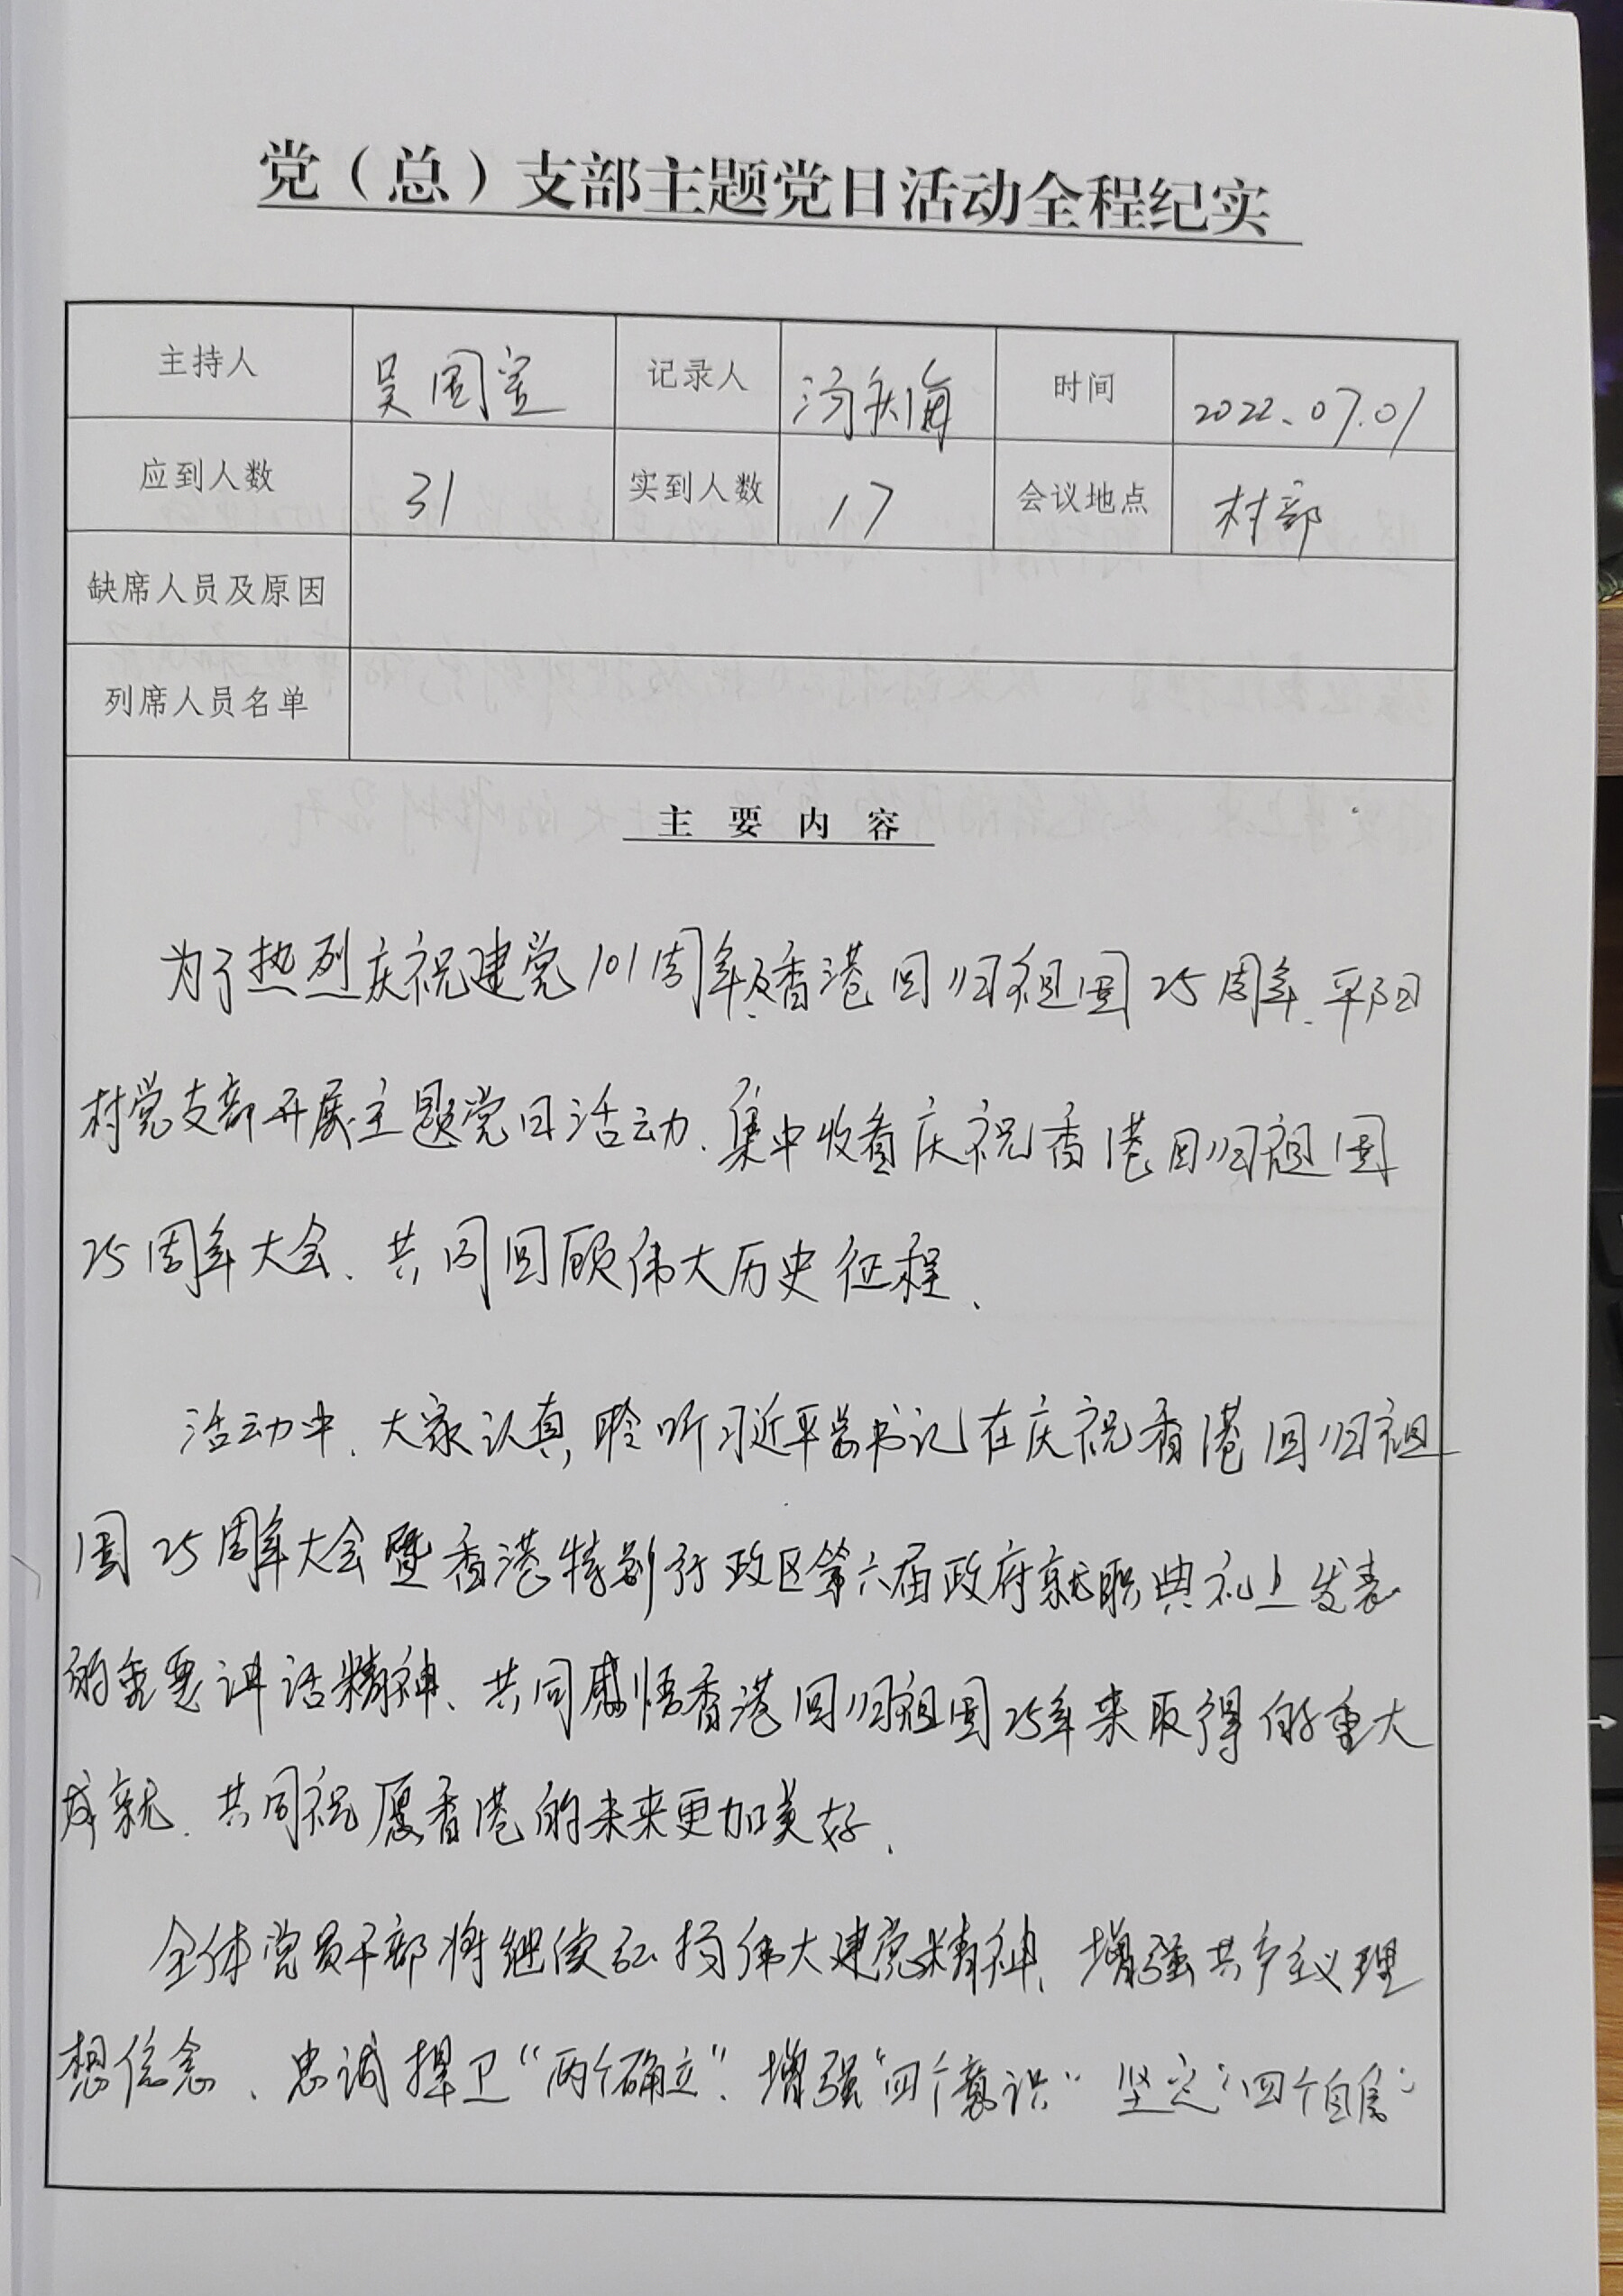 党（总）支部主题党日活动全程纪实
主持人 吴国定 记录人 汤庆海 时间 2022.07.01
应到人数 31 实到人数 17 会议地点 村部
缺席人员及原因
列席人员名单
主要内容
为了热烈庆祝建党101周年及香港回归祖国25周年、平阳
村党支部开展主题党日活动、集中收看庆祝香港回归祖国
25周年大会、共同回顾伟大历史征程、
活动中、大家认真聆听习近平总书记在庆祝香港回归祖
国25周年大会暨香港特别行政区第六届政府就职典礼上发表
的重要讲话精神、共同感悟香港回归祖国25年来取得的重大
成就、共同祝愿香港的未来更加美好、
全体党员干部将继续弘扬伟大建党精神、增强共产主义理
想信念、忠诚捍卫“两个确立”、增强“四个意识”坚定“四个自信”